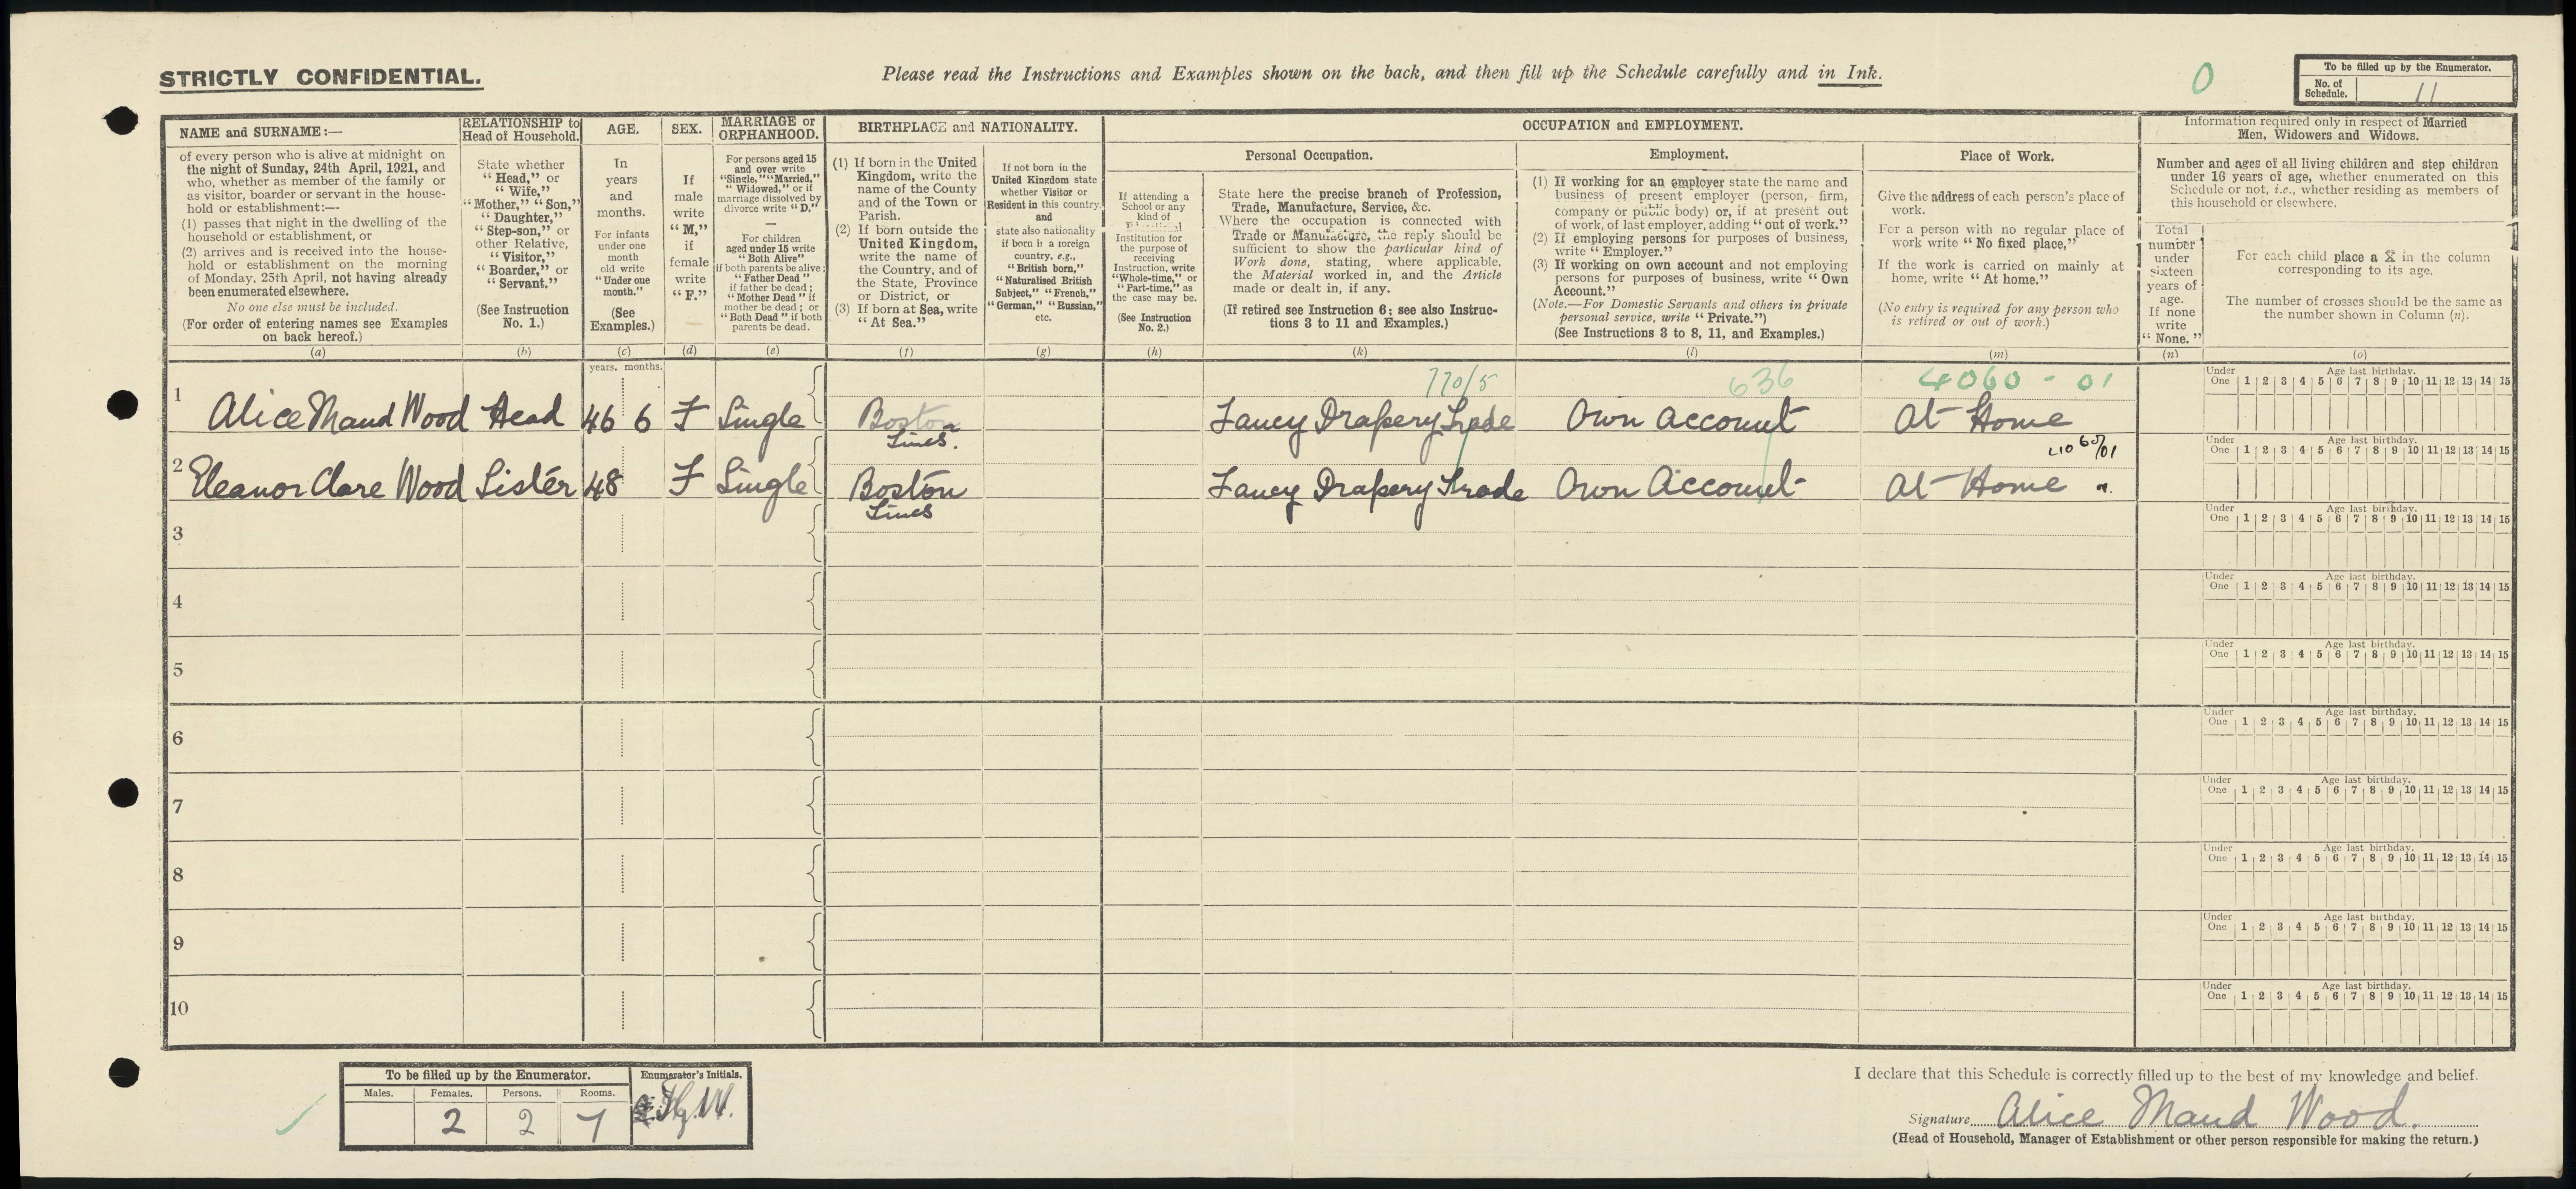 STRICTLY CONFIDENTIAL.
Please read the Instructions and Examples shown on the back, and then fill up the Schedule carefully and in Ink.
0
To be filled up by the Enumerator.
No. of Schedule. 11
NAME and SURNAME:—
of every person who is alive at midnight on
the night of Sunday, 24th April, 1921, and
who, whether as member of the family or
as visitor, boarder or servant in the house-
hold or establishment:—
(1) passes that night in the dwelling of the
household or establishment, or
(2) arrives and is received into the house-
hold or establishment on the morning
of Monday, 25th April, not having already
been enumerated elsewhere.
No one else must be included.
(For order of entering names see Examples
on back hereof.)
(a)
RELATIONSHIP to
Head of Household.
State whether
"Head," or
"Wife,"
"Mother," "Son,"
"Daughter,"
"Step-son," or
other Relative,
"Visitor,"
"Boarder," or
"Servant."
(See Instruction
No. 1.)
(b)
AGE.
In
years
and
months.
For infants
under one
month
old write
"Under one
month."
(See
Examples.)
(c)
SEX.
If
male
write
"M,"
if
female
write
"F."
(d)
MARRIAGE or
ORPHANHOOD.
For persons aged 15
and over write
"Single," "Married,"
"Widowed," or if
marriage dissolved by
divorce write "D."
—
For children
aged under 15 write
"Both Alive"
if both parents be alive;
"Father Dead"
if father be dead;
"Mother Dead" if
mother be dead; or
"Both Dead" if both
parents be dead.
(e)
BIRTHPLACE and NATIONALITY.
(1) If born in the United
Kingdom, write the
name of the County
and of the Town or
Parish.
(2) If born outside the
United Kingdom,
write the name of
the Country, and of
the State, Province
or District, or
(3) If born at Sea, write
"At Sea."
(f)
If not born in the
United Kingdom state
whether Visitor or
Resident in this country,
and
state also nationality
if born in a foreign
country, e.g.,
"British born,"
"Naturalised British
Subject," "French,"
"German," "Russian,"
etc.
(g)
OCCUPATION and EMPLOYMENT.
If attending a
School or any
kind of
Educational
Institution for
the purpose of
receiving
Instruction, write
"Whole-time," or
"Part-time," as
the case may be.
(See Instruction
No. 2.)
(h)
Personal Occupation.
State here the precise branch of Profession,
Trade, Manufacture, Service, &c.
Where the occupation is connected with
Trade or Manufacture, the reply should be
sufficient to show the particular kind of
Work done, stating, where applicable,
the Material worked in, and the Article
made or dealt in, if any.
(If retired see Instruction 6; see also Instruc-
tions 3 to 11 and Examples.)
(k)
Employment.
(1) If working for an employer state the name and
business of present employer (person, firm,
company or public body) or, if at present out
of work, of last employer, adding "out of work."
(2) If employing persons for purposes of business,
write "Employer."
(3) If working on own account and not employing
persons for purposes of business, write "Own
Account."
(Note.—For Domestic Servants and others in private
personal service, write "Private.")
(See Instructions 3 to 8, 11, and Examples.)
(l)
Place of Work.
Give the address of each person's place of
work.
For a person with no regular place of
work write "No fixed place,"
If the work is carried on mainly at
home, write "At home."
(No entry is required for any person who
is retired or out of work.)
(m)
Information required only in respect of Married
Men, Widowers and Widows.
Number and ages of all living children and step children
under 16 years of age, whether enumerated on this
Schedule or not, i.e., whether residing as members of
this household or elsewhere.
Total
number
under
sixteen
years of
age.
If none
write
"None."
(n)
For each child place a X in the column
corresponding to its age.
The number of crosses should be the same as
the number shown in Column (n).
(o)
years. months.
770/5 636 4060 - 01
1 Alice Maud Wood Head 46 6 F Single Boston Own Account At Home
Fancy Drapery Trade
Lincs.
4060/01
2 Eleanor Clare Wood Sister 48 F Single Boston Fancy Drapery Trade Own Account At Home
Lincs
3
4
5
6
7
8
9
10
Under One Age last birthday. 1 2 3 4 5 6 7 8 9 10 11 12 13 14 15
Under One Age last birthday. 1 2 3 4 5 6 7 8 9 10 11 12 13 14 15
Under One Age last birthday. 1 2 3 4 5 6 7 8 9 10 11 12 13 14 15
Under One Age last birthday. 1 2 3 4 5 6 7 8 9 10 11 12 13 14 15
Under One Age last birthday. 1 2 3 4 5 6 7 8 9 10 11 12 13 14 15
Under One Age last birthday. 1 2 3 4 5 6 7 8 9 10 11 12 13 14 15
Under One Age last birthday. 1 2 3 4 5 6 7 8 9 10 11 12 13 14 15
Under One Age last birthday. 1 2 3 4 5 6 7 8 9 10 11 12 13 14 15
Under One Age last birthday. 1 2 3 4 5 6 7 8 9 10 11 12 13 14 15
Under One Age last birthday. 1 2 3 4 5 6 7 8 9 10 11 12 13 14 15
To be filled up by the Enumerator.
Males. Females. Persons. Rooms.
2 2 7
Enumerator's Initials.
I declare that this Schedule is correctly filled up to the best of my knowledge and belief.
Signature Alice Maud Wood.
(Head of Household, Manager of Establishment or other person responsible for making the return.)